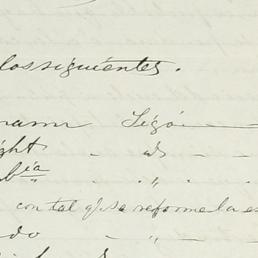 los siguientes.
ramm Legó
ght " id "
bia " "
con tal q. se reforme la es
do - " -